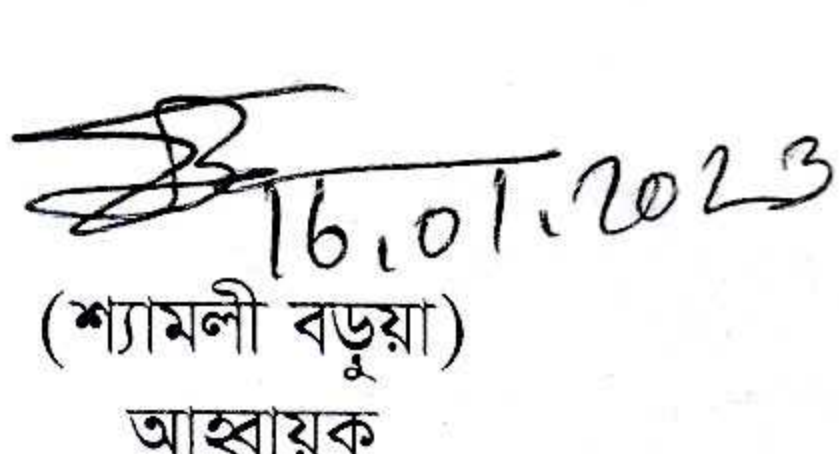 16.01.2023
(শ্যামলী বড়ুয়া)
আহ্বায়ক